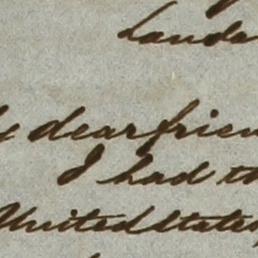 dear frien
I had th
United States